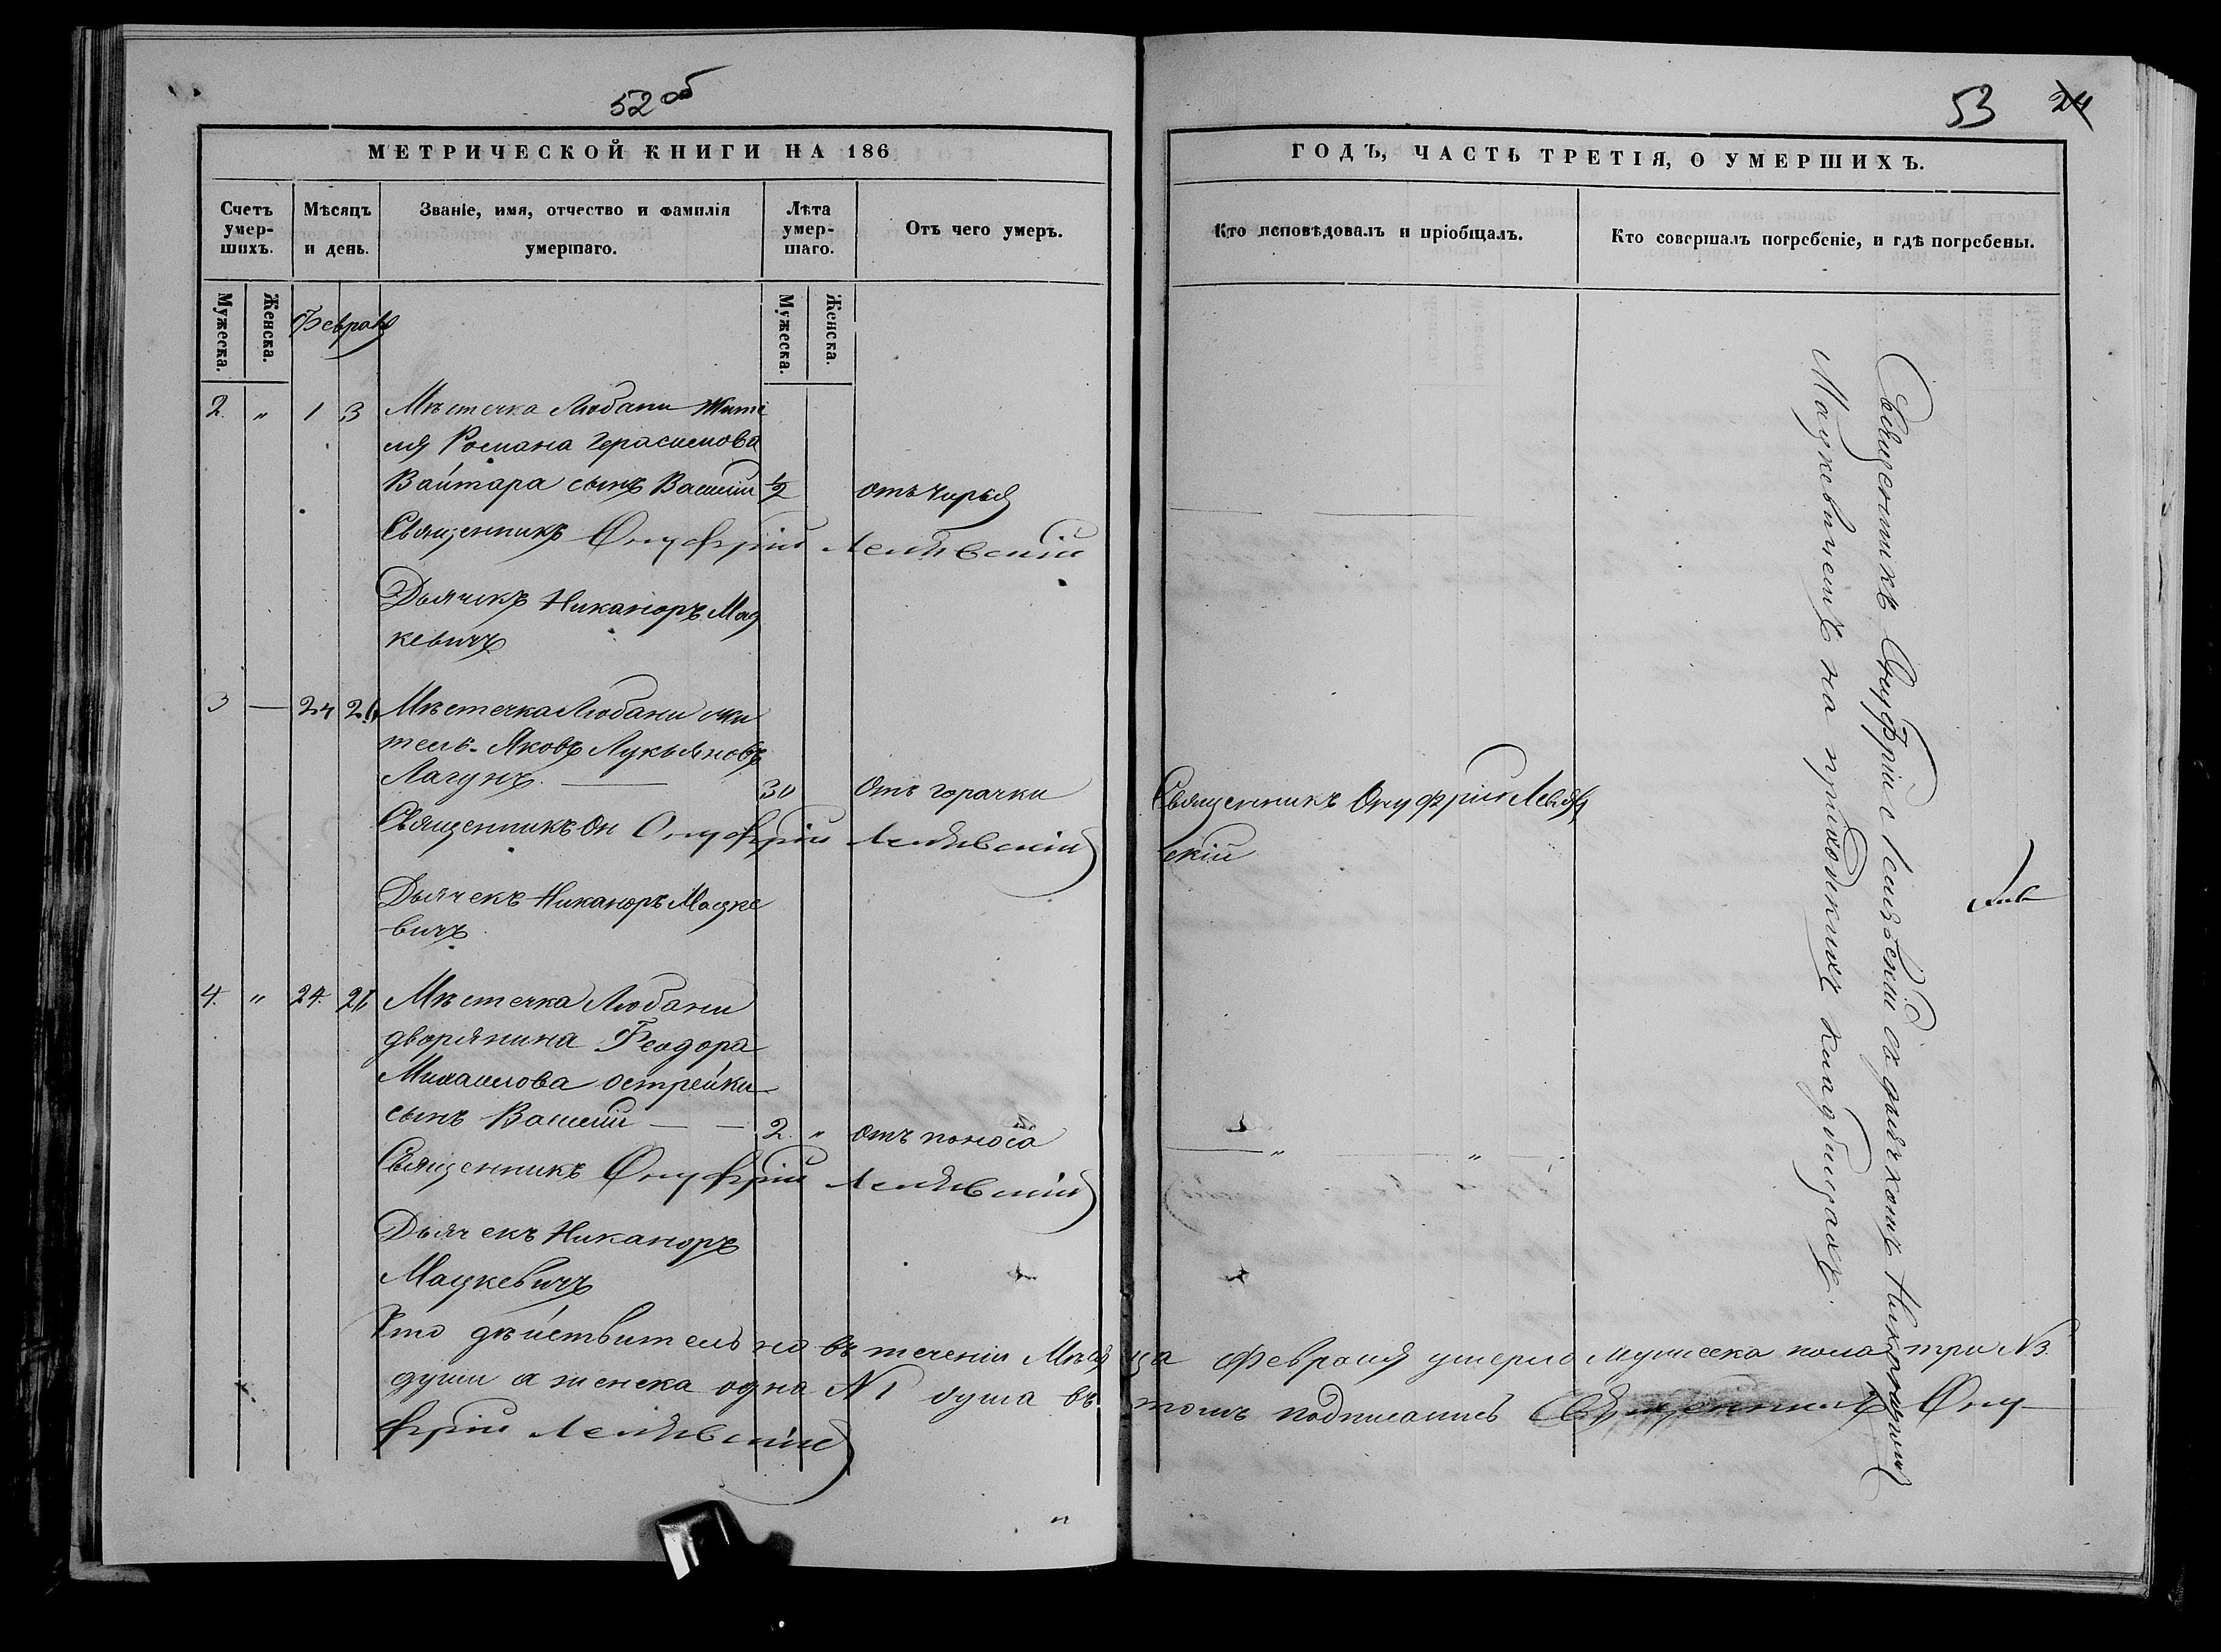 52 об
МЕТРИЧЕСКОЙ КНИГИ НА 186
Счетъ умер-шихъ.
Мѣсяцъ и день.
Званіе, имя, отчество и фамилія умершаго.
Лѣта умер-шаго.
Отъ чего умеръ.
Мужеска.
Женска.
Февраль
Мужеска.
Женска.
2. " 1 3 Мѣстечка Любани жите
ля Романа Герасимова
Вайтара сынъ Василій 1/2 отъ чирья
Священникъ Онуфрій
Дьячекъ Никаноръ Мац
кевичъ
3 — 24 26 Мѣстечка Любани жи
тель Яковъ Лукьяновъ
Лагунъ. — 30 Отъ горачки
Священникъ Он Онуфрій
Дьячекъ Никаноръ Мацке
-вичъ
4. " 24. 26 Мѣстечка Любани
дворянина Феодора
Михаилова Острейки
сынъ Василій — — 2. " отъ поноса
Священникъ Онуфрій
Дьячекъ Никаноръ
Мацкевичъ
Что дѣйствительно въ теченіи Мѣся
души а женска одна N1 душа въ
фрій
53 24
ГОДЪ, ЧАСТЬ ТРЕТІЯ, О УМЕРШИХЪ.
Кто исповѣдовалъ и пріобщалъ.
Кто совершалъ погребеніе, и гдѣ погребены.
Священникъ Онуфрій
скій
Священникъ Онуфрій съ дьячкомъ Никаноромъ
Мацкевичемъ на приходскихъ кладбищахъ.
ца Февраля умерло мужеска пола три N3.
томъ подписались Священникъ Ону